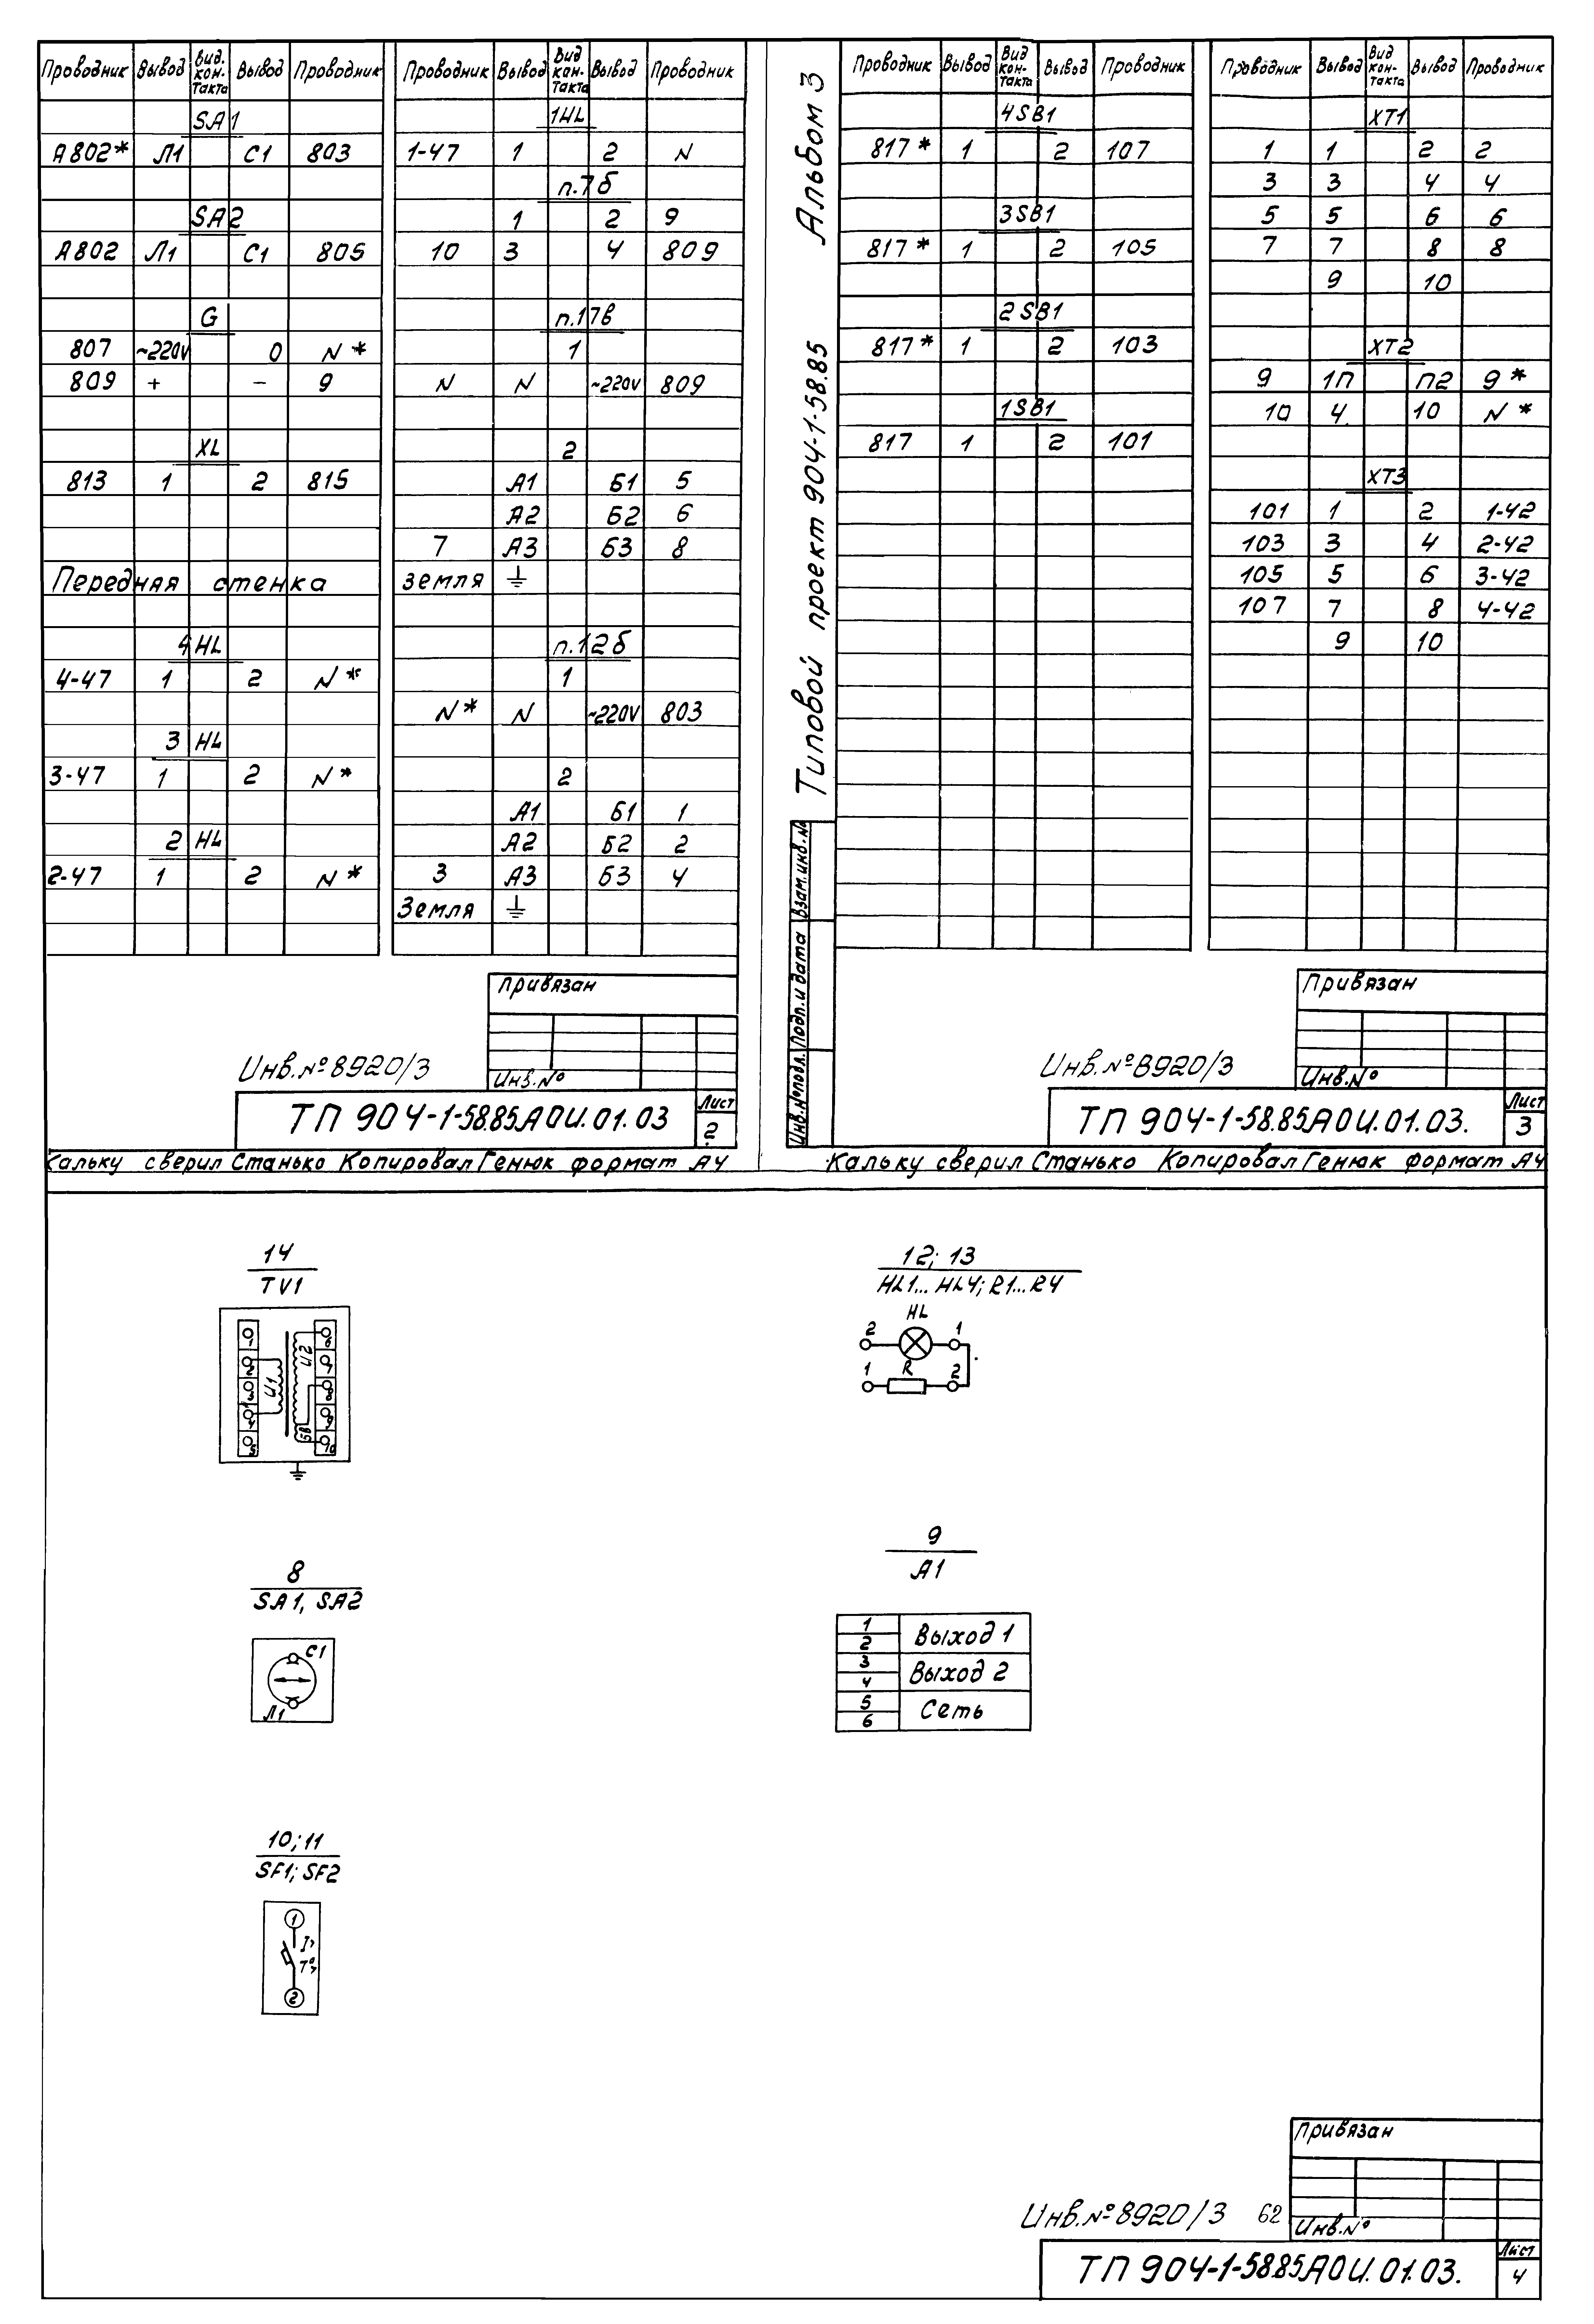 Проводник Вывод Вид. кон- такта Вывод Проводник
SA1
А802* Л1 С1 803
SA2
А802 Л1 С1 805
G
807 ~220V 0 N*
809 + - 9
XL
813 1 2 815
Передняя стенка
4HL
4-47 1 2 N*
3 HL
3-47 1 2 N*
2 HL
2-47 1 2 N*
Проводник Вывод Вид кон- такта Вывод Проводник
1HL
1-47 1 2 N
п.7б
1 2 9
10 3 4 809
п.17в
1
N N ~220V 809
2
А1 Б1 5
А2 Б2 6
7 А3 Б3 8
земля ⏚
п.12б
1
N* N ~220V 803
2
А1 Б1 1
А2 Б2 2
3 А3 Б3 4
Земля ⏚
Привязан
Инв.№
Инв.№8920/3
ТП 904-1-58.85АОИ.01.03
Лист
2
Кальку сверил Станько Копировал Генюк формат А4
Типовой проект 904-1-58.85 Альбом 3
Взам.инв.№
Подп.и дата
Инв.№подл.
Проводник Вывод Вид кон- такта Вывод Проводник
4SB1
817* 1 2 107
3SB1
817* 1 2 105
2SB1
817* 1 2 103
1SB1
817 1 2 101
Проводник Вывод Вид кон- такта Вывод Проводник
XT1
1 1 2 2
3 3 4 4
5 5 6 6
7 7 8 8
9 10
XT2
9 1П П2 9*
10 4 10 N*
XT3
101 1 2 1-42
103 3 4 2-42
105 5 6 3-42
107 7 8 4-42
9 10
Привязан
Инв.№
Инв.№8920/3
ТП 904-1-58.85АОИ.01.03.
Лист
3
Кальку сверил Станько Копировал Генюк формат А4
14
TV1
1 2 3 4 5
И1 И2 5В
6 7 8 9 10
12; 13
HL1... HL4; R1...R4
HL
2 1
R
1 2
8
SA1, SA2
С1
Л1
9
А1
1
2
Выход 1
3
4
Выход 2
5
6
Сеть
10; 11
SF1; SF2
1
I>
T°>
2
Привязан
Инв.№
Инв.№8920/3 62
ТП 904-1-58.85АОИ.01.03.
Лист
4